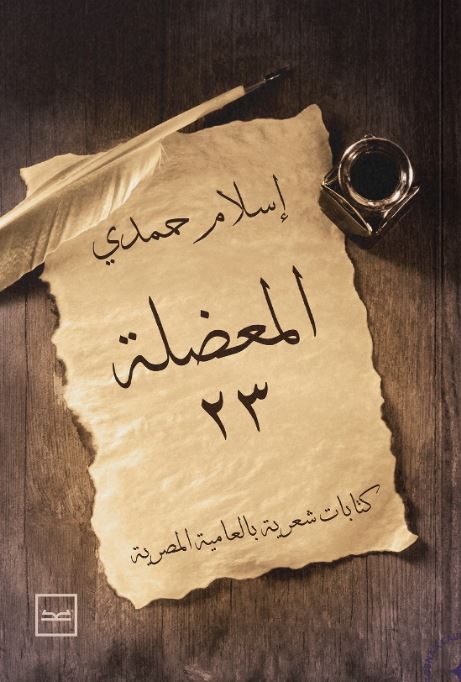 إسلام حمدي
المعضلة
٢٣
كتابات شعرية بالعامية المصرية